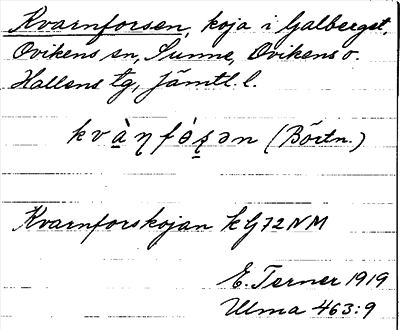 Kvarnforsen, koja i Galberget,
Ovikens sn, Sunne, Ovikens o.
Hallens tg, Jämtl. l.
kvàŋfòʂən (Börtn.)
Kvarnforskojan kG72NM
E. Terner 1919
Ulma 463:9